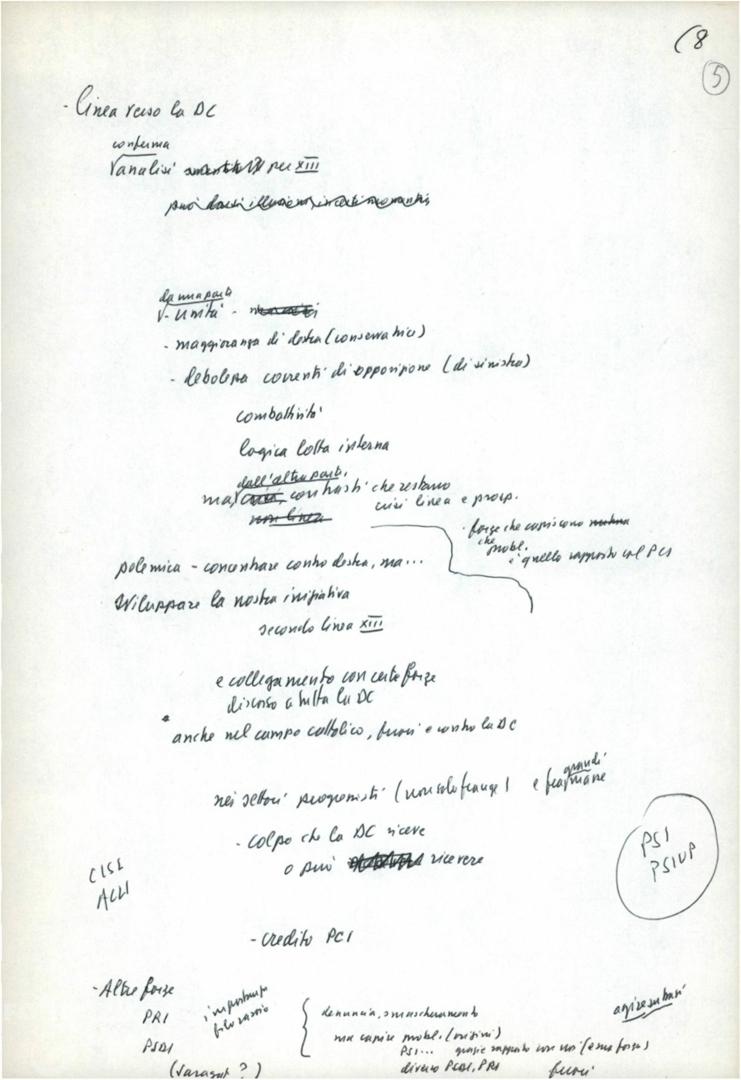 (8
5
- linea verso la DC
conferma
analisi per XIII
da una parte
- unità -
- maggioranza di destra (conservatrice)
- debolezza correnti di opposizione (di sinistra)
combattività
logica lotta interna
dall'altra parte
ma contrasti che restano
crisi linea e prosp.
non linea
- forze che capiscono
che
mobl.
è quello rapporto col PCI
polemica - concentrare contro destra, ma...
sviluppare la nostra iniziativa
secondo linea XIII
e collegamento con certe forze
discorso a tutta la DC
anche nel campo cattolico, fuori e contro la DC
nei settori progressisti (non solo frange) e
grandi
- colpo che la DC riceve
o può ricevere
PSI
PSIUP
CISL
ACLI
- Credito PCI
- Altre forze
PRI
PSDI
(Saragat?)
denuncia, smascheramento
ma capire mobl.
PSI... grazie rapporto con noi
diverso PSDI, PRI
fuori
agire su basi